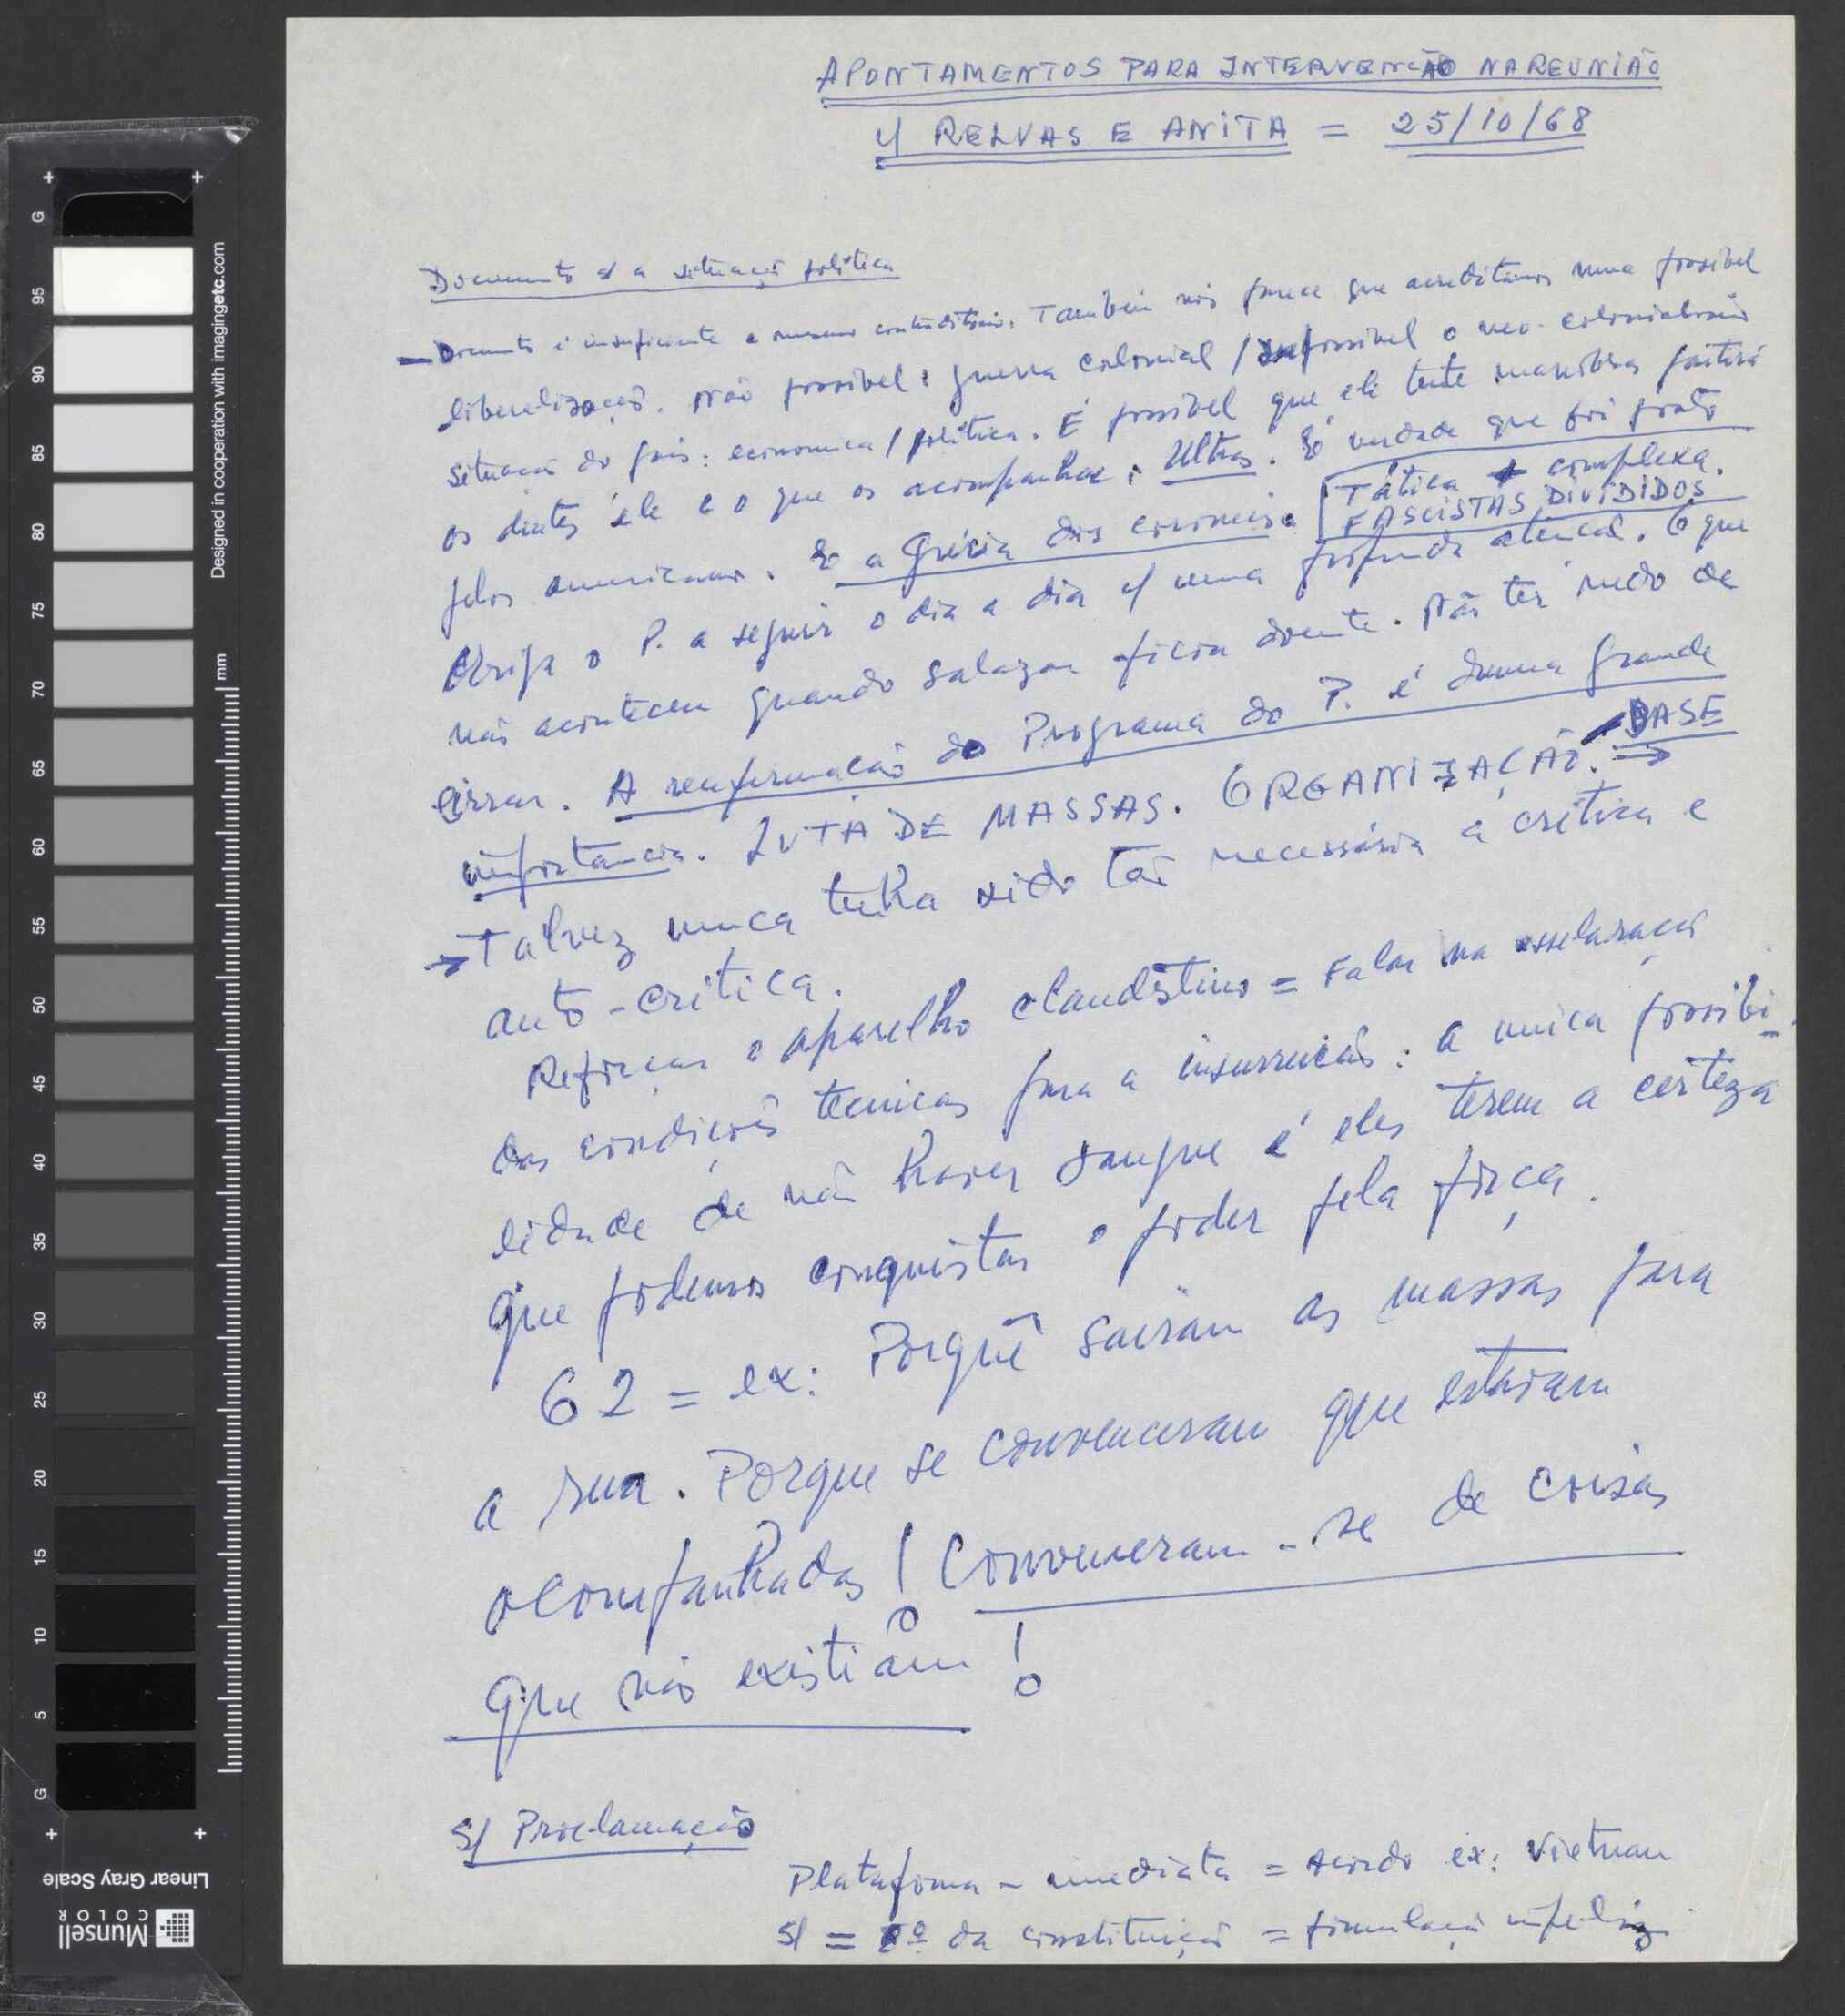 APONTAMENTOS PARA INTERVENÇÃO NA REUNIÃO
C/ RELVAS E ANITA = 25/10/68
Documento s/ a situação política
— Documento é insuficiente e mesmo contraditório. Também nos parece que acreditamos numa possível
liberalização. Não possível: guerra colonial / impossível o neo-colonialismo
situação do país: economica / política. É possível que ele tente manobras
os dentes ele e o que os acompanhar: Ultras. É verdade que foi
pelos americanos. É a Grécia dos coroneis.
Tática + complexa.
FASCISTAS DIVIDIDOS
Obriga o P. a seguir o dia a dia c/ uma profunda atenção. O que
não aconteceu quando Salazar ficou doente. Não ter medo de
errar. A reafirmação do Programa do P. é duma grande
importancia. LUTA DE MASSAS. ORGANIZAÇÃO. → BASE
→ Talvez nunca tenha sido tão necessária a crítica e
auto-critica.
Reforçar o aparelho clandestino = Falar na
das condições tecnicas para a insurreição: a unica possibi-
lidade de não haver sangue é eles terem a certeza
que podemos conquistar o poder pela força.
62 = ex: Porquê sairam as massas para
a rua. Porque se convenceram que estariam
acompanhadas! Convenceram-se de coisas
que não existiam!
S/ Proclamação
Plataforma - imediata = Acordo ex: Vietnam
S/ = 8º da constituição = formulação infeliz
Designed in cooperation with imagingetc.com
mm
G 95 90 85 80 75 70 65 60 55 50 45 40 35 30 25 20 15 10 5 G
Linear Gray Scale
Munsell
COLOR